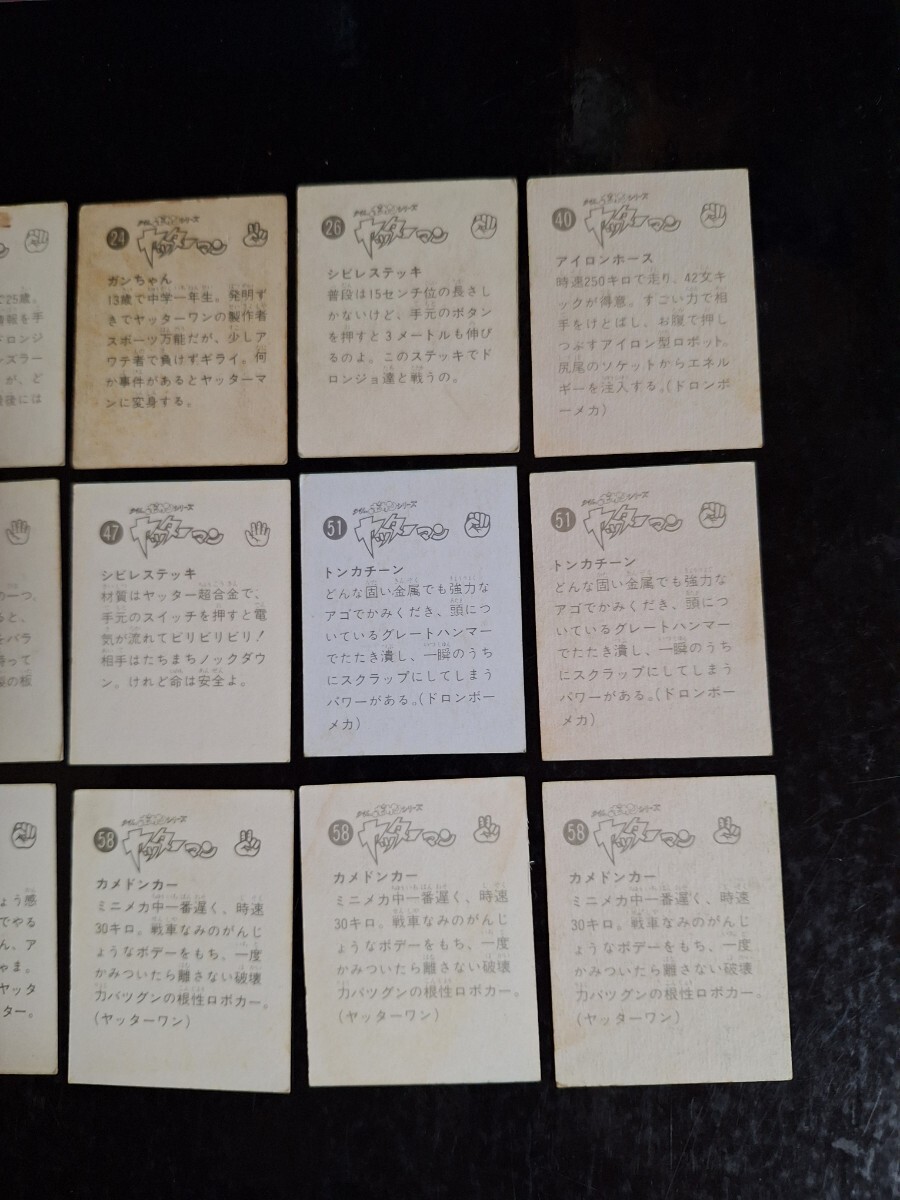 で25歳。
情報を手
ドロンジ
ンズラー
が、ど
最後には
24
タイムボカンシリーズ
ヤッターマン
ガンちゃん
13歳で中学一年生。発明ず
きでヤッターワンの製作者
スポーツ万能だが、少しア
ウテ者で負けずギライ。何
か事件があるとヤッターマ
ンに変身する。
26
タイムボカンシリーズ
ヤッターマン
シビレステッキ
普段は15センチ位の長さし
かないけど、手元のボタン
を押すと3メートルも伸び
るのよ。このステッキでド
ロンジョ達と戦うの。
40
タイムボカンシリーズ
ヤッターマン
アイロンホース
時速250キロで走り、42文キ
ックが得意。すごい力で相
手をけとばし、お腹で押し
つぶすアイロン型ロボット。
尻尾のソケットからエネル
ギーを注入する。(ドロンボ
ーメカ)
の一つ。
ると、
をバラ
持って
製の板
47
タイムボカンシリーズ
ヤッターマン
シビレステッキ
材質はヤッター超合金で、
手元のスイッチを押すと電
気が流れてビリビリビリ!
相手はたちまちノックダウ
ン。けれど命は安全よ。
51
タイムボカンシリーズ
ヤッターマン
トンカチーン
どんな固い金属でも強力な
アゴでかみくだき、頭につ
いているグレートハンマー
でたたき潰し、一瞬のうち
にスクラップにしてしまう
パワーがある。(ドロンボー
メカ)
51
タイムボカンシリーズ
ヤッターマン
トンカチーン
どんな固い金属でも強力な
アゴでかみくだき、頭につ
いているグレートハンマー
でたたき潰し、一瞬のうち
にスクラップにしてしまう
パワーがある。(ドロンボー
メカ)
ょう感
でやる
ん、ア
ゃま。
ヤッタ
ター。
58
タイムボカンシリーズ
ヤッターマン
カメドンカー
ミニメカ中一番遅く、時速
30キロ。戦車なみのがんじ
ょうなボデーをもち、一度
かみついたら離さない破壊
力バツグンの根性ロボカー。
(ヤッターワン)
58
タイムボカンシリーズ
ヤッターマン
カメドンカー
ミニメカ中一番遅く、時速
30キロ。戦車なみのがんじ
ょうなボデーをもち、一度
かみついたら離さない破壊
力バツグンの根性ロボカー。
(ヤッターワン)
58
タイムボカンシリーズ
ヤッターマン
カメドンカー
ミニメカ中一番遅く、時速
30キロ。戦車なみのがんじ
ょうなボデーをもち、一度
かみついたら離さない破壊
力バツグンの根性ロボカー。
(ヤッターワン)